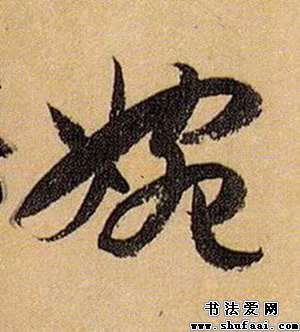 婉
书法爱网
www.shufaai.com